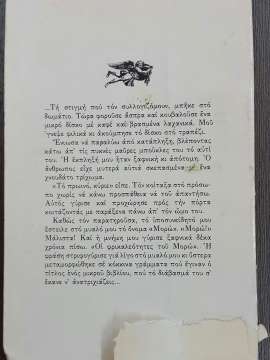 ...Τὴ στιγμὴ ποὺ τὸν συλλογιζόμουν, μπῆκε στὸ
δωμάτιο. Τώρα φοροῦσε ἄσπρα καὶ κουβαλοῦσε ἕνα
μικρὸ δίσκο μὲ καφὲ καὶ βρασμένα λαχανικά. Μοῦ
'γνεψε φιλικὰ κι ἀκούμπησε τὸ δίσκο στὸ τραπέζι.
Ἔνιωσα νὰ παραλύω ἀπὸ κατάπληξη, βλέποντας
κάτω ἀπ' τὶς πυκνὲς μαῦρες μπούκλες του τὸ αὐτί
του. Ἡ ἔκπληξή μου ἦταν ξαφνικὴ κι ἀπότομη. Ὁ
ἄνθρωπος εἶχε μυτερὰ αὐτιὰ σκεπασμένα μὲ ἕνα
χνουδάτο τρίχωμα.
«Τὸ πρωινό, κύριε» εἶπε. Τὸν κοίταξα στὸ πρόσω-
πο χωρὶς νὰ κάνω προσπάθεια νὰ τοῦ ἀπαντήσω.
Αὐτὸς γύρισε καὶ προχώρησε πρὸς τὴν πόρτα
κοιτάζοντάς με παράξενα πάνω ἀπ' τὸν ὦμο του.
Καθὼς τὸν παρατηροῦσα, τὸ ὑποσυνείδητό μου
ἔστειλε στὸ μυαλό μου τὸ ὄνομα «Μορώ». «Μορώ;!
Μάλιστα! Καὶ ἡ μνήμη μου γύρισε ξαφνικὰ δέκα
χρόνια πίσω. «Οἱ φρικαλεότητες τοῦ Μορώ». Ἡ
φράση στριφογύρισε γιὰ λίγο στὸ μυαλό μου κι ὕστερα
μεταμορφώθηκε σὲ κόκκινα γράμματα ποὺ ἔγιναν ὁ
τίτλος ἑνὸς μικροῦ βιβλίου, ποὺ τὸ διάβασμά του σ'
ἔκανε ν' ἀνατριχιάζεις...